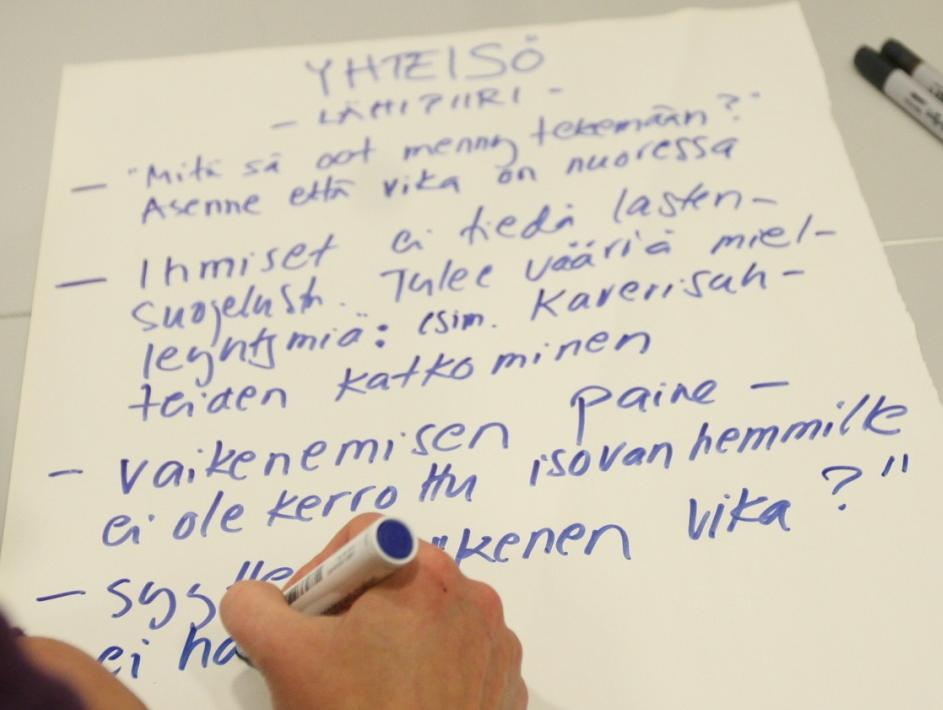 YHTEISÖ
- LÄHIPIIRI -
- "Mitä sä oot menny tekemään?"
Asenne että vika on nuoressa
- Ihmiset ei tiedä lasten-
suojelust. Tulee vääriä miel-
leyhtymiä: esim. Kaverisuh-
teiden katkominen
- vaikenemisen paine -
ei ole kerrottu isovanhemmille
- "kenen vika?"
ei